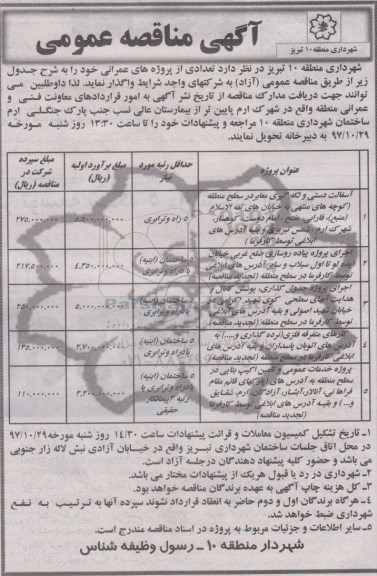 آگهی مناقصه عمومی
شهرداری منطقه ۱۰ تبریز
شهرداری منطقه ۱۰ تبریز در نظر دارد تعدادی از پروژه های عمرانی خود را به شرح جدول
زیر از طریق مناقصه عمومی (آزاد) به شرکتهای واجد شرایط واگذار نماید. لذا داوطلبین می
توانند جهت دریافت مدارک مناقصه از تاریخ نشر آگهی به امور قراردادهای معاونت فنی و
عمرانی منطقه واقع در شهرک ارم پایین تر از بیمارستان عالی نسب جنب پارک جنگلی ارم
ساختمان شهرداری منطقه ۱۰ مراجعه و پیشنهادات خود را تا ساعت ۱۳:۳۰ روز شنبه مورخه
۹۷/۱۰/۲۹ به دبیرخانه تحویل نمایند.
عنوان پروژه
حداقل رتبه مورد نیاز
مبلغ برآورد اولیه (ریال)
مبلغ سپرده شرکت در مناقصه (ریال)
آسفالت دستی و لکه گیری معابر در سطح منطقه
(کوچه های منتهی به خیابان های ثقه الاسلام
(منبع)، فارابی، مفتح، امام دوست، کوهسار،
شهرک ارم، شمس تبریزی و بقیه آدرس های
ابلاغی توسط کارفرما)
۵ راه وترابری
۵,۵۰۰,۰۰۰,۰۰۰
۲۷۵,۰۰۰,۰۰۰
۲
اجرای پروژه پیاده روسازی ضلع غربی خیابان
ایده لو تا اول سیلاب و سایر آدرس های ابلاغی
توسط کارفرما در سطح منطقه (تجدید مناقصه)
۵ ساختمان (ابنیه) یا راه وترابری
۴,۳۵۰,۰۰۰,۰۰۰
۲۱۷,۵۰۰,۰۰۰
۳
اجرای پروژه جدول گذاری، پوشش کانال و
هدایت آبهای سطحی کوی شهید
خیابان شهید اصولی و بقیه آدرس های ابلاغی
توسط کارفرما در سطح منطقه (تجدید مناقصه)
۵ ساختمان (ابنیه) یا راه وترابری
۵,۰۰۰,۰۰۰,۰۰۰
۲۵۰,۰۰۰,۰۰۰
کارهای متفرقه فلزی (نرده گذاری و....) به
آدرس های اتوبان پاسداران و بقیه آدرس های
ابلاغی توسط کارفرما در سطح منطقه (تجدید مناقصه)
۵ ساختمان (ابنیه) یا راه وترابری
۲,۷۰۰,۰۰۰,۰۰۰
۱۳۵,۰۰۰,۰۰۰
۵
پروژه خدمات عمومی و تامین اکیپ بنایی در
سطح منطقه به آدرس های (پارکهای قائم مقام
فراهانی، آنالار، آبشار، آزادگان، ارم، شقایق
و...) و بقیه آدرس های ابلاغی توسط کارفرما
(تجدید مناقصه)
۵ ساختمان (ابنیه) یا راه وترابری یا رتبه ۲ پیمانکار حقیقی
۲,۲۰۰,۰۰۰,۰۰۰
۱۱۰,۰۰۰,۰۰۰
۱_ تاریخ تشکیل کمیسیون معاملات و قرائت پیشنهادات ساعت ۱۴/۳۰ روز شنبه مورخه ۹۷/۱۰/۲۹
در محل اتاق جلسات ساختمان شهرداری تبریز واقع در خیابان آزادی نبش لاله زار جنوبی
می باشد و حضور کلیه پیشنهاد دهندگان در جلسه آزاد است.
۲_ شهرداری در رد یا قبول هریک از پیشنهادات مختار می باشد.
۳_ کل هزینه چاپ آگهی به عهده برندگان مناقصه خواهد بود.
۴_ هرگاه برندگان اول و دوم حاضر به انعقاد قرارداد نشوند سپرده آنها به ترتیب به نفع
شهرداری ضبط خواهد شد.
۵_ سایر اطلاعات و جزئیات مربوط به پروژه در اسناد مناقصه مندرج است.
شهردار منطقه ۱۰ _ رسول وظیفه شناس